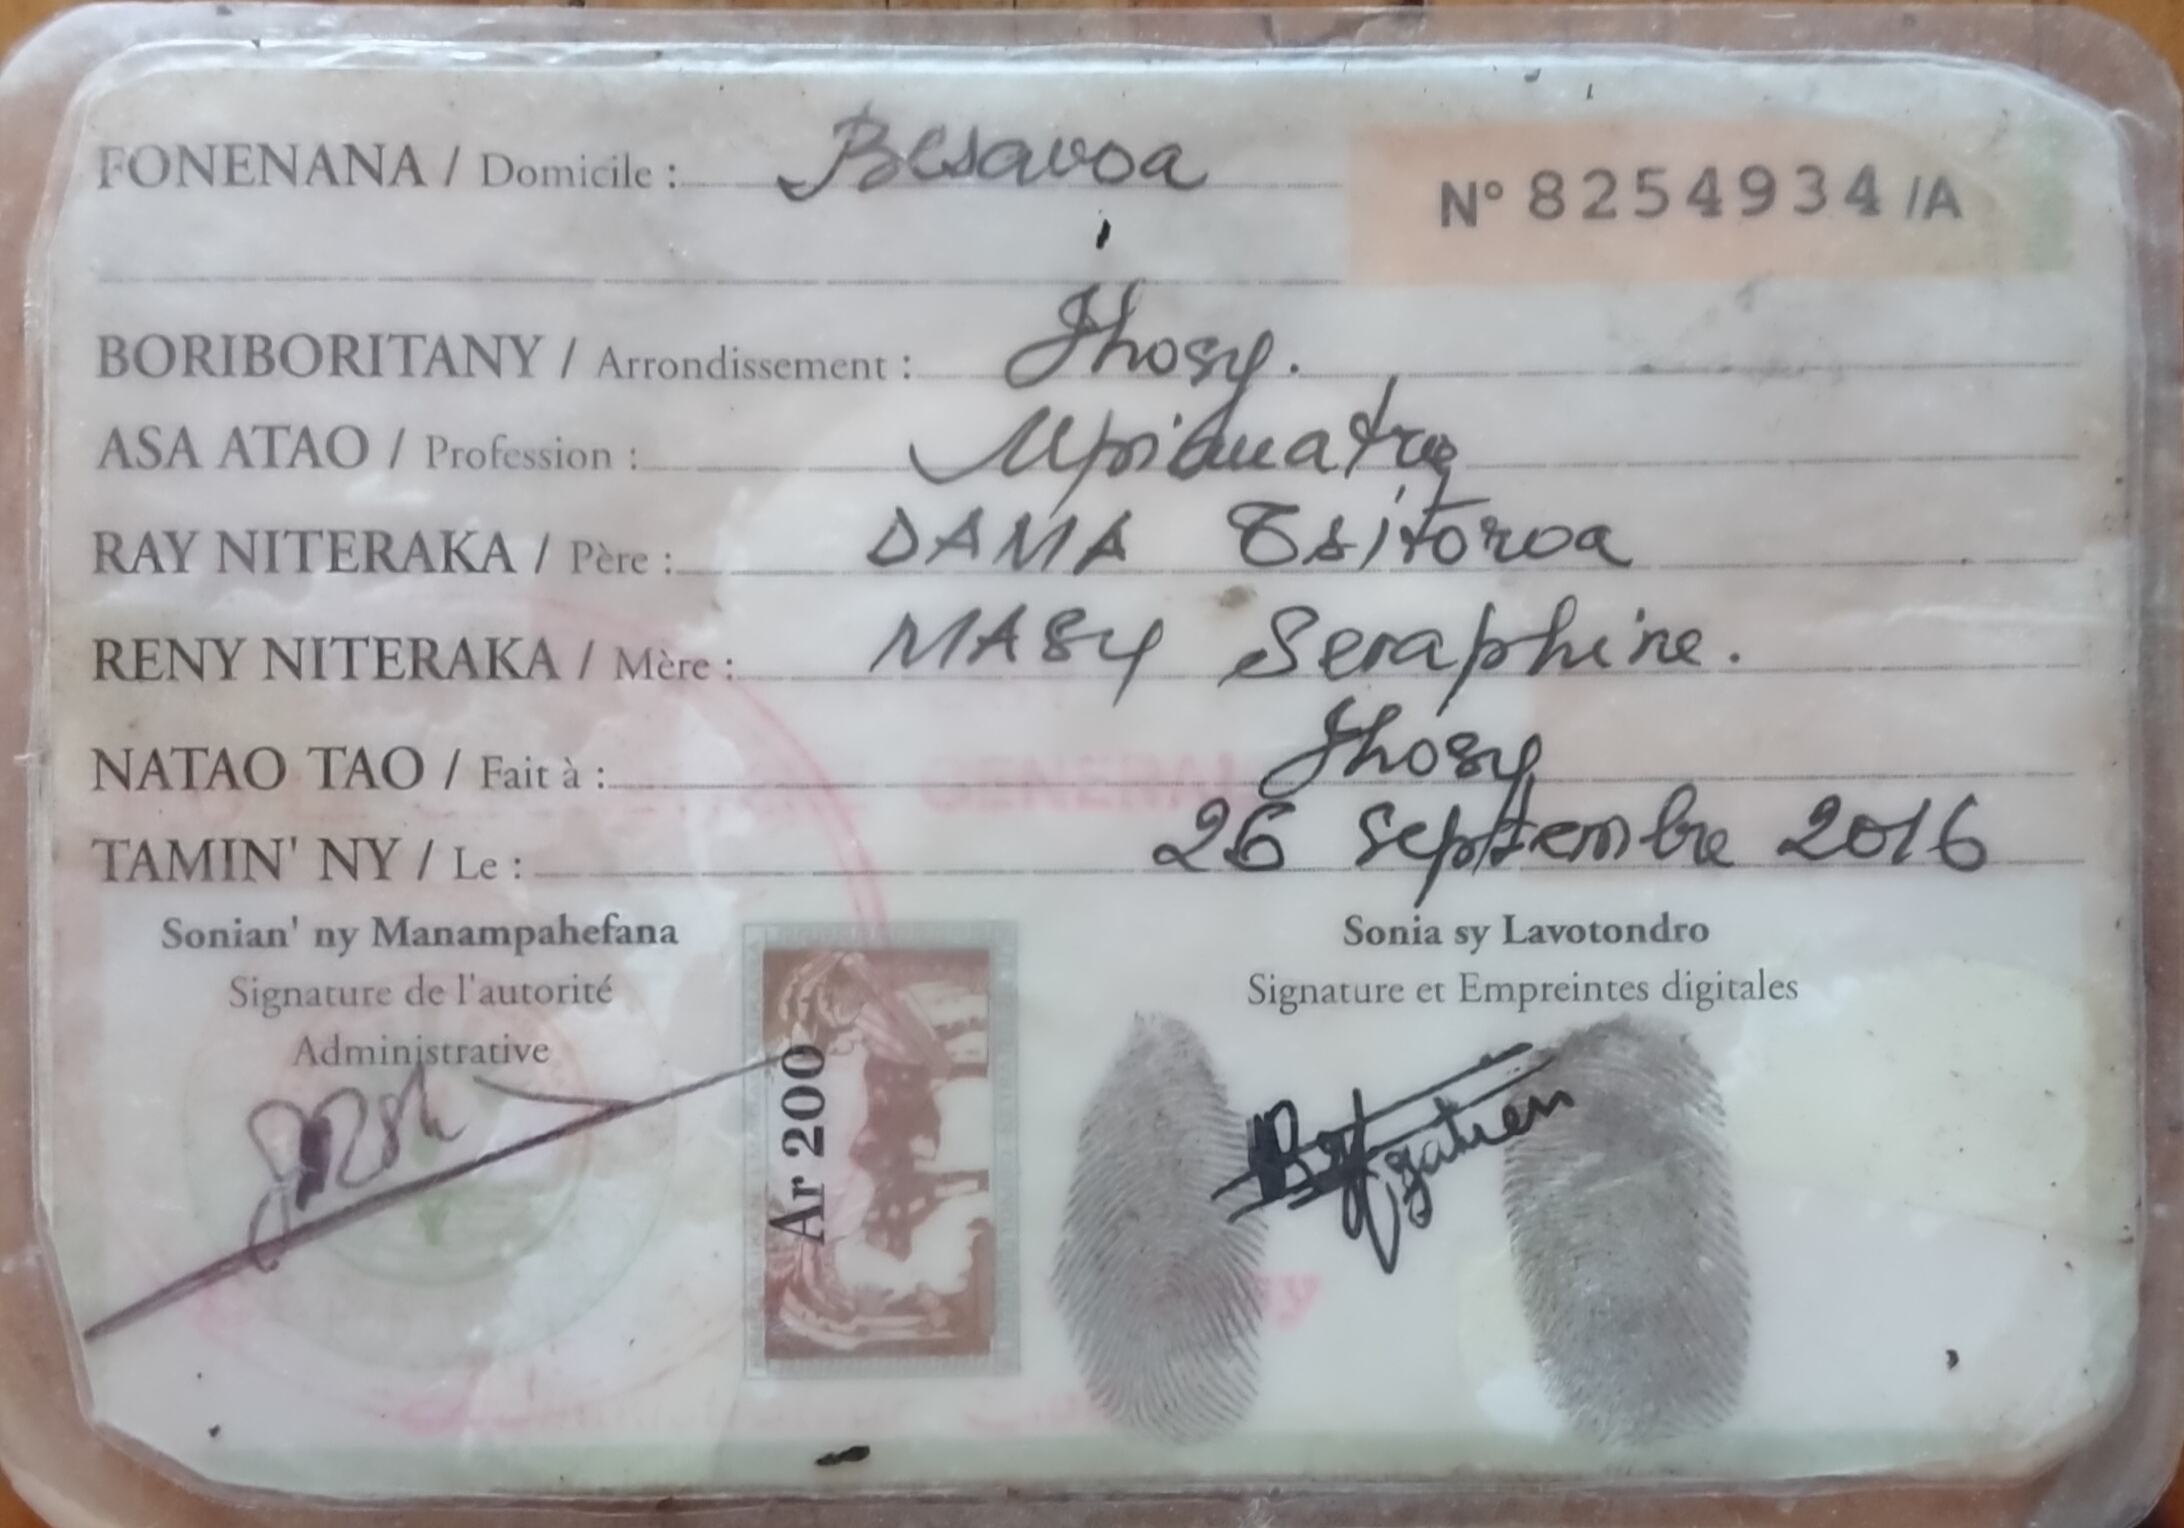 FONENANA / Domicile : Besavoa
N° 8254934 /A
BORIBORITANY / Arrondissement : Ihosy.
ASA ATAO / Profession : Mpianatra
RAY NITERAKA / Père : DAMA Tsitoroa
RENY NITERAKA / Mère : MASY Seraphine.
NATAO TAO / Fait à : Ihosy
TAMIN' NY / Le : 26 Septembre 2016
Sonian' ny Manampahefana
Signature de l'autorité
Administrative
Ar 200
Sonia sy Lavotondro
Signature et Empreintes digitales